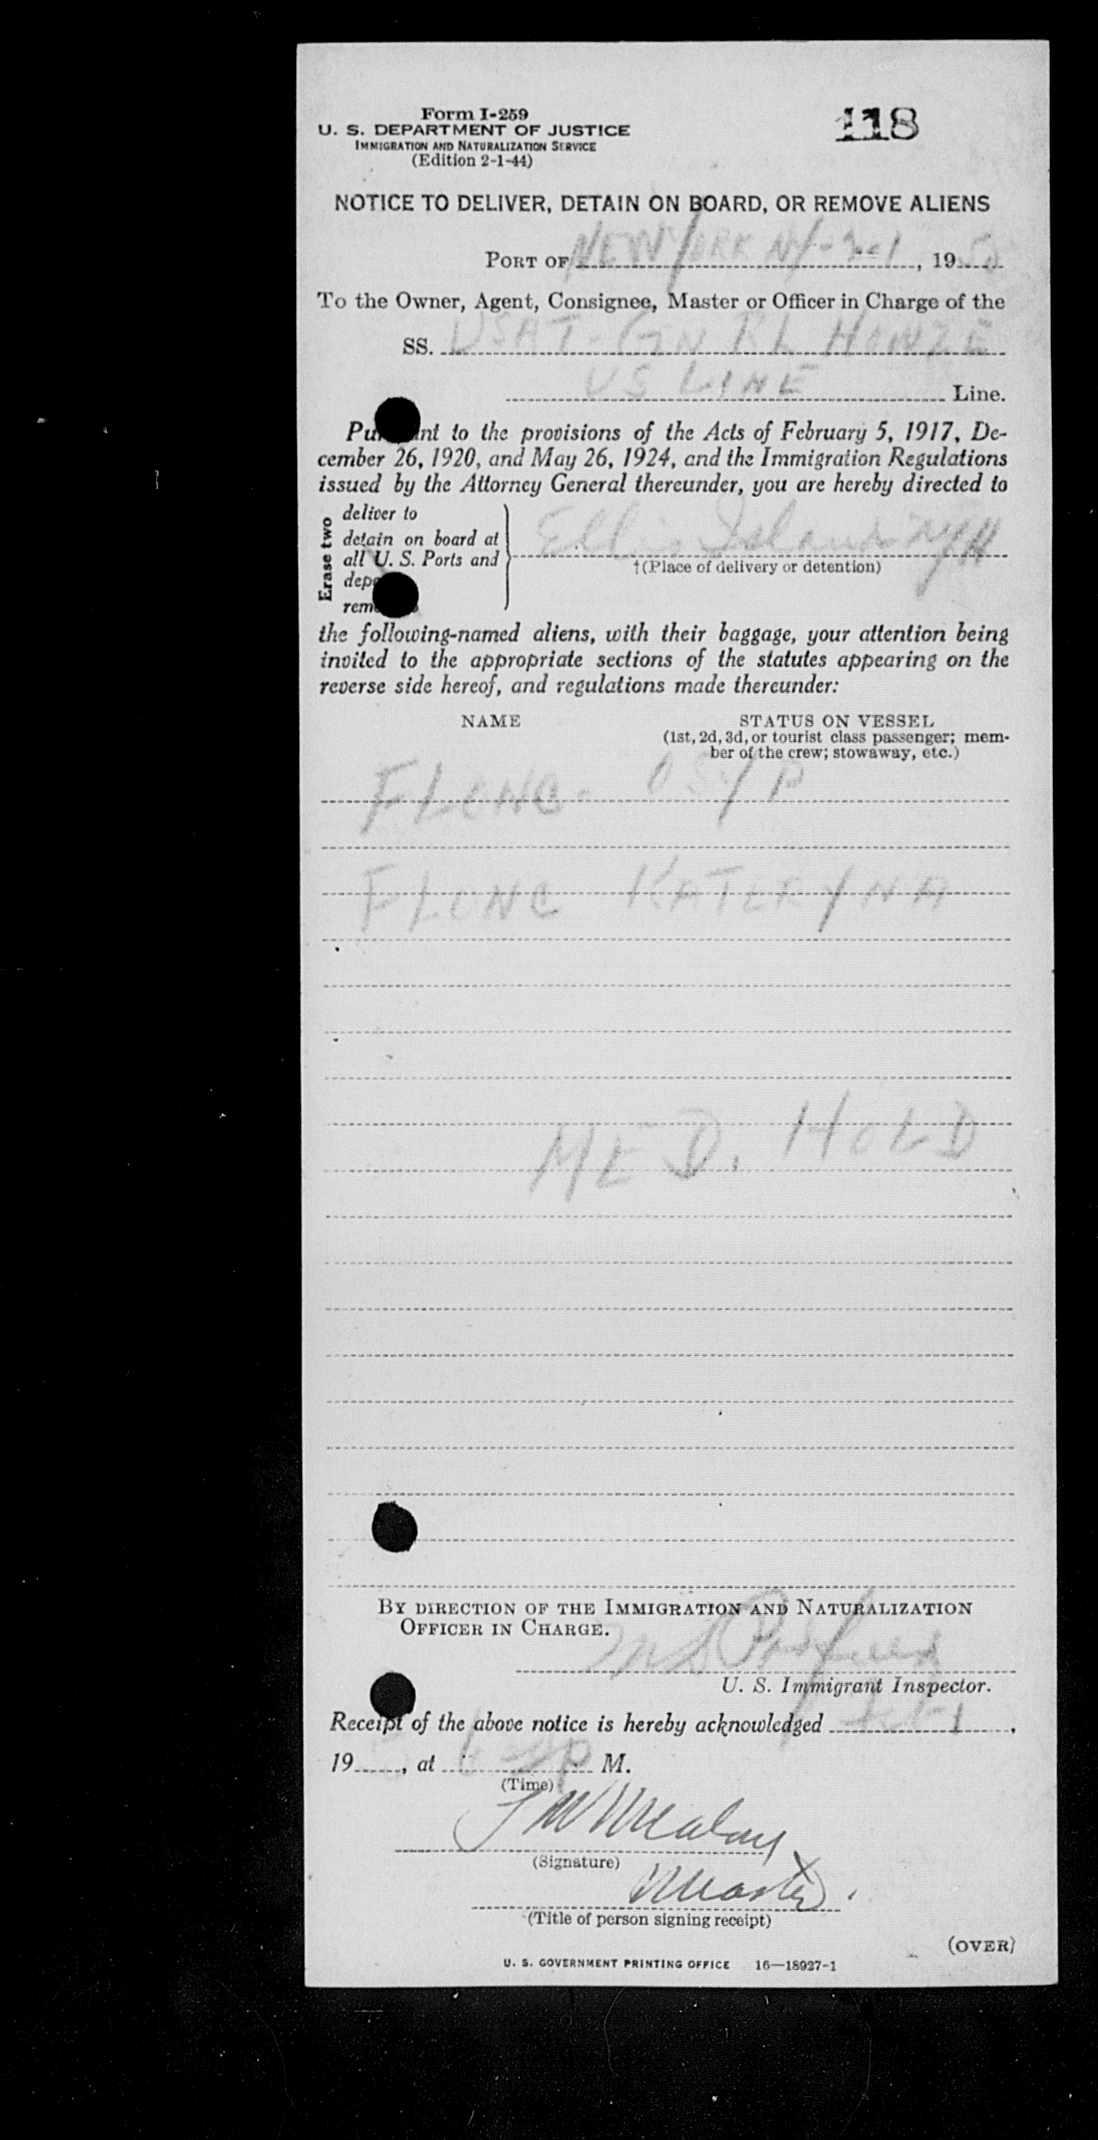 Form I-259
118
U. S. DEPARTMENT OF JUSTICE
IMMIGRATION AND NATURALIZATION SERVICE
(Edition 2-1-44)
NOTICE TO DELIVER, DETAIN ON BOARD, OR REMOVE ALIENS
PORT OF NEW YORK NY-2-1, 1950
To the Owner, Agent, Consignee, Master or Officer in Charge of the
SS. USAT-GN RL HOWZE
US LINE Line.
nt to the provisions of the Acts of February 5, 1917, De-
cember 26, 1920, and May 26, 1924, and the Immigration Regulations
issued by the Attorney General thereunder, you are hereby directed to
Erase two
deliver to
detain on board at
all U. S. Ports and
Ellis Island NYH
†(Place of delivery or detention)
the following-named aliens, with their baggage, your attention being
invited to the appropriate sections of the statutes appearing on the
reverse side hereof, and regulations made thereunder:
NAME STATUS ON VESSEL
(1st, 2d, 3d, or tourist class passenger; mem-
ber of the crew; stowaway, etc.)
FLONC - OSYP
FLONC KATERYNA
MED. HOLD
BY DIRECTION OF THE IMMIGRATION AND NATURALIZATION
OFFICER IN CHARGE.
U. S. Immigrant Inspector.
Receipt of the above notice is hereby acknowledged 2-1,
19, at M.
(Time)
(Signature)
Master.
(Title of person signing receipt)
(OVER)
U. S. GOVERNMENT PRINTING OFFICE 16—18927-1